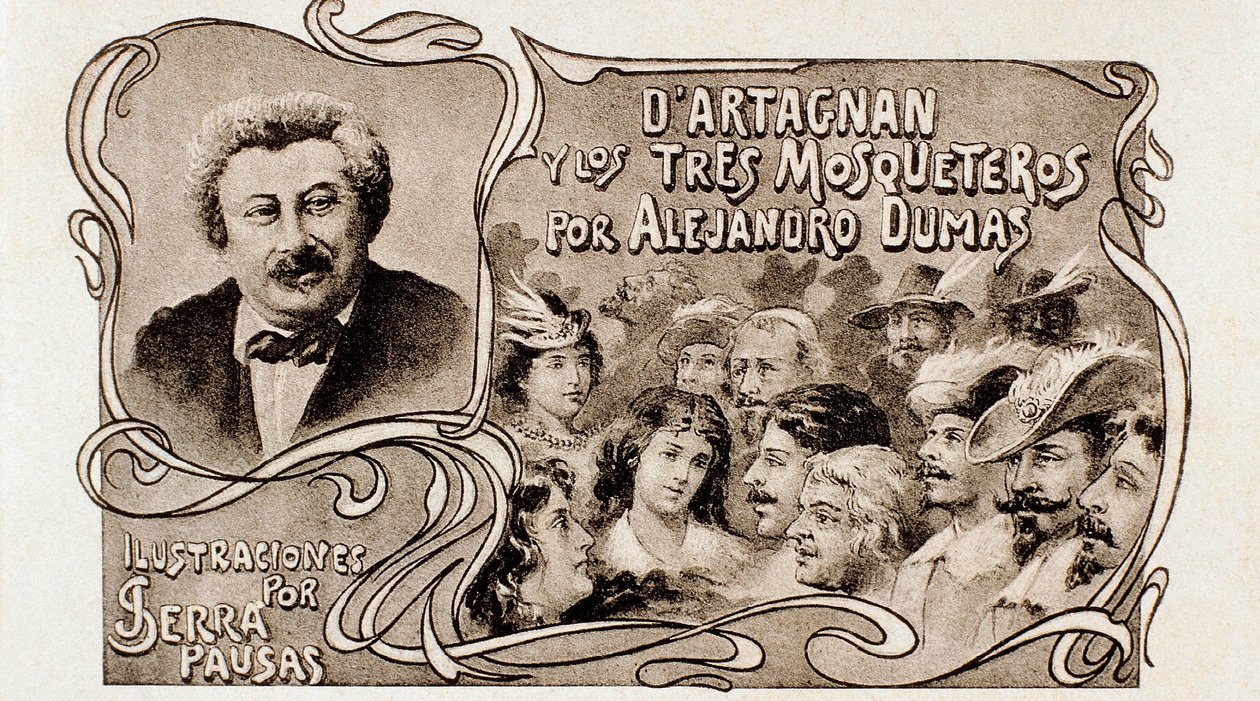 D'ARTAGNAN
Y LOS TRES MOSQUETEROS
POR ALEJANDRO DUMAS
ILUSTRACIONES
POR
SERRA
PAUSAS